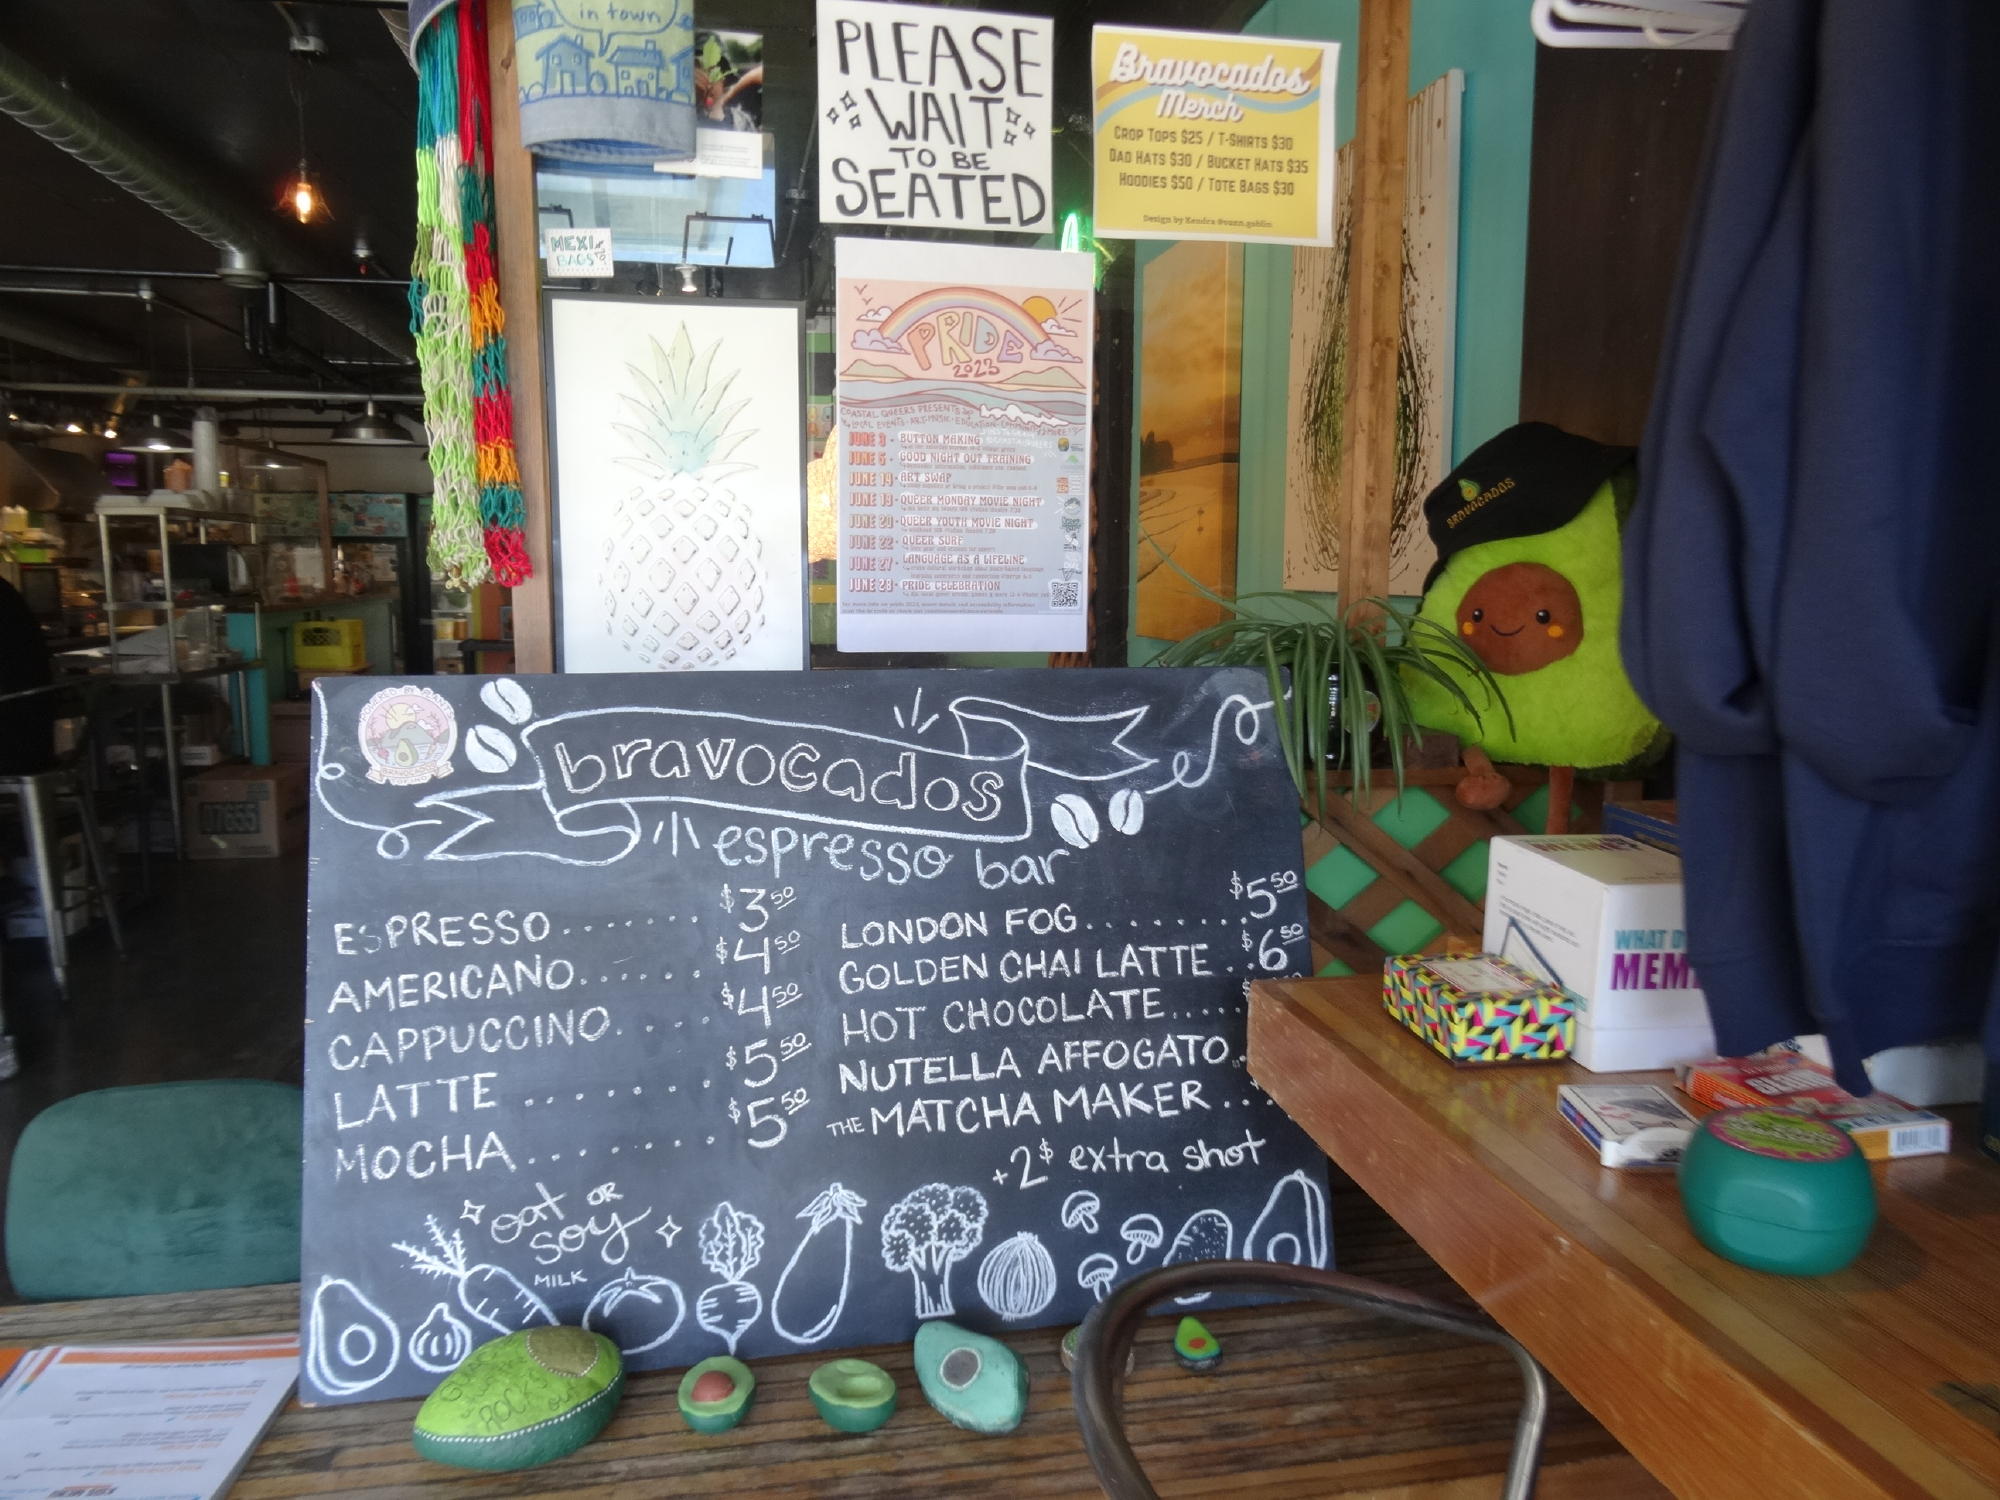 in town
PLEASE
WAIT
TO BE
SEATED
Bravocados
Merch
CROP TOPS $25 / T-SHIRTS $30
DAD HATS $30 / BUCKET HATS $35
HOODIES $50 / TOTE BAGS $30
Design by Kendra @vunn.goblin
MEXI
BAGS
PRIDE
2023
COASTAL QUEERS PRESENTS
LOCAL EVENTS · ART · MUSIC · EDUCATION · COMMUNITY & MORE!
JUNE 3 · BUTTON MAKING
JUNE 5 · GOOD NIGHT OUT TRAINING
JUNE 14 · ART SWAP
JUNE 19 · QUEER MONDAY MOVIE NIGHT
JUNE 20 · QUEER YOUTH MOVIE NIGHT
JUNE 22 · QUEER SURF
JUNE 27 · LANGUAGE AS A LIFELINE
JUNE 28 · PRIDE CELEBRATION
BRAVOCADOS
POWERED BY PLANTS
BRAVOCADOS
bravocados
espresso bar
ESPRESSO ...... $3.50
AMERICANO ...... $4.50
CAPPUCCINO .... $4.50
LATTE ....... $5.50
MOCHA ....... $5.50
LONDON FOG ........ $5.50
GOLDEN CHAI LATTE .. $6.50
HOT CHOCOLATE ..... $
NUTELLA AFFOGATO.
THE MATCHA MAKER ...
+2$ extra shot
oat OR
soy
MILK
07655
WHAT D
MEM
ROCKS
KIDS MENU